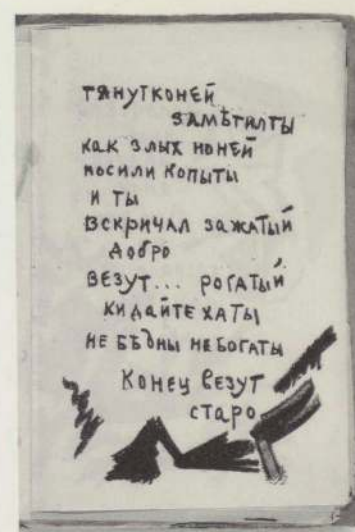 тянутконей
замѣтилты
как злых коней
носили копыты
и ты
вскричал зажатый
добро
везут... рогатый
кидайте хаты
не бѣдны небогаты
конец везут
старо